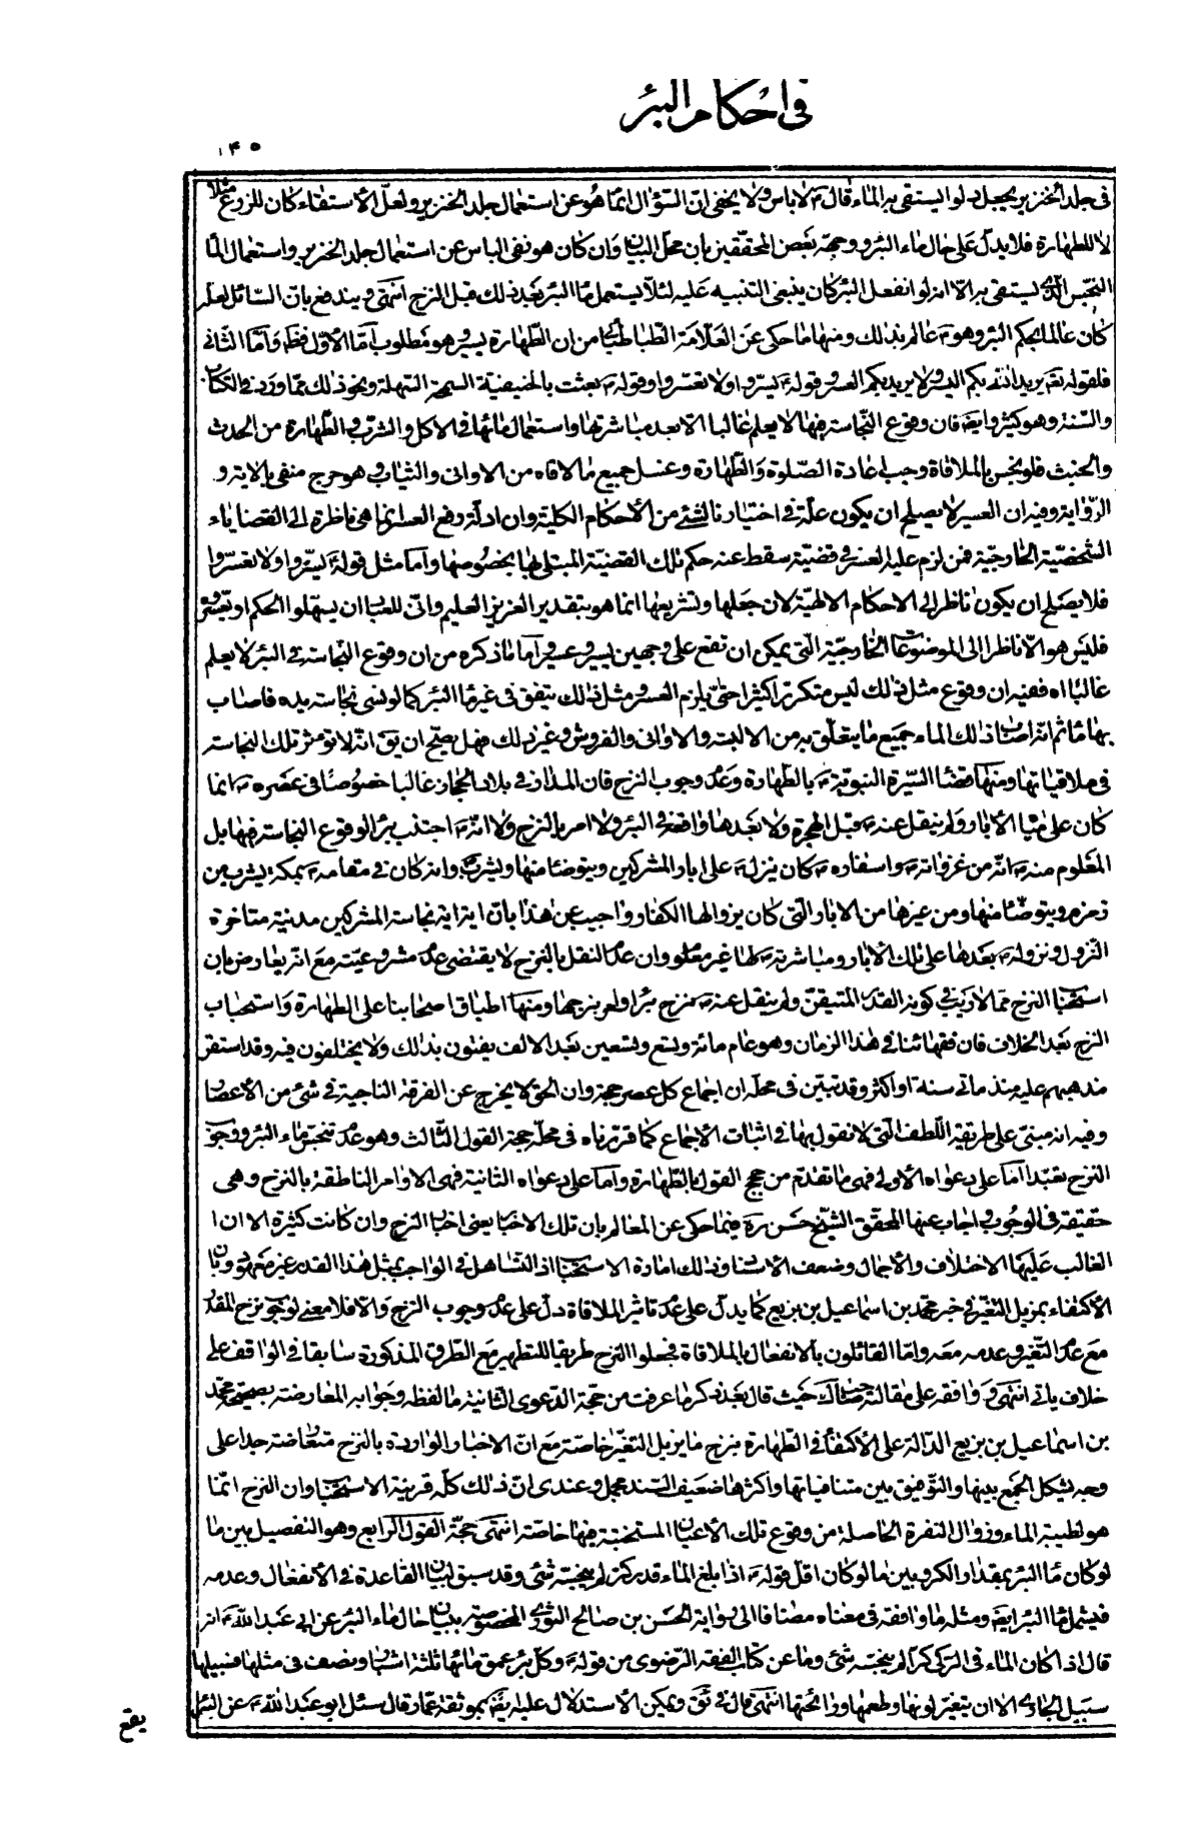 فی احکام البئر
۱۴۵
فی جلد الخنزیر یجعل دلوا لیستقی به الماء قال ع لا باس ولا یخفی ان السؤال انما هو عن استعمال جلد الخنزیر ولعل الاستقاء کان للزرع مثلا
لا للطهارة فلا یدل علی حال ماء البئر ووجهه بعض المحققین بان محل البیان وان کان هو نفی الباس عن استعمال جلد الخنزیر واستعمال الماء
النجس الذی یستقی به الا انه لو انفعل البئر کان ینبغی التنبیه علیه لئلا یستعمل ماء البئر بعد ذلک قبل النزح انتهی ویندفع بان السائل لعله
کان عالما بحکم البئر وهو ع عالم بذلک ومنها ما حکی عن العلامة الطباطبائی من ان الطهارة یسر وهو مطلوب اما الاول فظ واما الثانی
فلقوله تعم یرید الله بکم الیسر ولا یرید بکم العسر وقوله ع یسروا ولا تعسروا وقوله ع بعثت بالحنیفیة السمحة السهلة ونحو ذلک مما ورد فی الکتاب
والسنة وهو کثیر وایضا فان وقوع النجاسة فیها لا یعلم غالبا الا بعد مباشرتها واستعمال مائها فی الاکل والشرب والطهارة من الحدث
والخبث فلو نجس بالملاقاة وجب اعادة الصلوة والطهارة وغسل جمیع ما لاقاه من الاوانی والثیاب وهو حرج منفی بالایة و
الروایة وفیه ان العسیر لا یصلح ان یکون علة فی اختیارنا لشیء من الاحکام الکلیة وان ادلة رفع العسر انما هی ناظرة الی القضایاء
الشخصیة الخارجیة فمن لزم علیه العسر فی قضیة سقط عنه حکم تلک القضیة المبتلی بها بخصوصها واما مثل قوله ع یسروا ولا تعسروا
فلا یصلح ان یکون ناظر الی الاحکام الالهیة لان جعلها وتشریعها انما هو بتقدیر العزیز العلیم وانی للعباد ان یسهلوا الحکم او یعسروه
فلیس هو الا ناظرا الی الموضوعات الخارجیة التی یمکن ان تقع علی وجهین یسیر وعسیر واما ما ذکره من ان وقوع النجاسة فی البئر لا یعلم
غالبا اه ففیه ان وقوع مثل ذلک لیس متکررا کثیرا حتی یلزم العسر ومثل ذلک یتفق فی غیر ماء البئر کما لو نسی نجاسة یده فاصاب
بها ماء ثم انه اصاب ذلک الماء جمیع ما یتعلق به من الالبسة والاوانی والفروش وغیر ذلک فهل یصح ان یق انه لا تؤثر تلک النجاسة
فی ملاقیاتها ومنها قضاء السیرة النبویة ص بالطهارة وعدم وجوب النزح فان المدار فی بلاد الحجاز غالبا خصوصا فی عصره ص انما
کان علی میاه الابار ولم ینقل عنه ص قبل الهجرة ولا بعدها واقعة فی البئر ولا امر بالنزح ولا انه ص اجتنب بئرا لوقوع النجاسة فیها بل
المعلوم منه ص انه من غزواته ص واسفاره ص کان ینزل ص علی ابار المشرکین ویتوضا منها ویشرب وانه کان فی مقامه ص بمکة یشرب من
زمزم ویتوضا منها ومن غیرها من الابار التی کان یزوالها الکفار واجیب عن هذا بان ایة نجاسة المشرکین مدنیة متاخرة
النزول ونزوله ص بعدها علی تلک الابار ومباشرته ص لها غیر معلوم وان عدم النقل بالنزح لا یقتضی عدم مشروعیته مع انه یعارض بان
استحباب النزح مما لا ریب فی کونه القدر المتیقن ولم ینقل عنه ص نزح بئرا ولم یر بنزحها ومنها اطباق اصحابنا علی الطهارة واستحباب
النزح بعد الخلاف فان فقهائنا فی هذا الزمان وهو عام مائة وتسع وتسعین بعد الالف یفتون بذلک ولا یختلفون فیه وقد استقر
مذهبهم علیه منذ مائتی سنة او اکثر وقد تبین فی محله ان اجماع کل عصر حجة وان الحق لا یخرج عن الفرقة الناجیة فی شیء من الاعصار
وفیه انه مبنی علی طریقة اللطف التی لا نقول بها فی اثبات الاجماع کما قررناه فی محله حجة القول الثالث وهو عدم تنجس ماء البئر ووجوب
النزح تعبدا اما علی دعواه الاولی فهی ما تقدم من حجج القول بالطهارة واما علی دعواه الثانیة فهی الاوامر الناطقة بالنزح وهی
حقیقة فی الوجوب واجاب عنها المحقق الشیخ حسن ره فیما حکی عن المعالم بان تلک الاخبار یعنی اخبار النزح وان کانت کثیرة الا ان ا
الغالب علیها الاختلاف والاجمال وضعف الاسناد وذلک امارة الاستحباب اذ التساهل فی الواجب بمثل هذا القدر غیر معهود وبان
الاکتفاء بمزیل التغیر فی خبر محمد بن اسماعیل بن بزیع کما یدل علی عدم تاثیر الملاقاة دل علی عدم وجوب النزح والا فلا معنی لوجوب نزح المقدر
مع عدم التغیر وعدمه معه واما القائلون بالانفعال بالملاقاة فجعلوا النزح طریقا للتطهیر مع الطرق المذکورة سابقا فی الواقف علی
خلاف یاتی انتهی ووافقه علی مقالته صاحب لک حیث قال بعد ذکر ما عرفت من حجة الدعوی الثانیة ما لفظه وجوابه المعارضة بصحیح محمد
بن اسماعیل بن بزیع الدالة علی الاکتفاء فی الطهارة بنزح ما یزیل التغیر خاصة مع ان الاخبار الواردة بالنزح متعارضة جدا علی
وجه یشکل الجمع بینها والتوفیق بین متنافیاتها واکثرها ضعیف السند مجمل وعندی ان ذلک کله قرینة الاستحباب وان النزح انما
هو لطیبة الماء وزوال النفرة الحاصلة من وقوع تلک الاعیان المستخبثة فیها خاصة انتهی حجة القول الرابع وهو التفصیل بین ما
لو کان ماء البئر بمقدار الکر وبین ما لو کان اقل قوله ع اذا بلغ الماء قدر کر لم ینجسه شیء وقد سبق لبیان القاعدة فی الانفعال وعدمه
فیشمل ماء البئر ایضا ومثله ما وافقه فی معناه مضافا الی روایة الحسن بن صالح الثوری المخصوصة ببیان حال ماء البئر عن ابی عبد الله ع انه
قال اذا کان الماء فی الرکی کرا لم ینجسه شیء وما عن کتاب الفقه الرضوی من قوله ع وکل بئر عمق مائها ثلثة اشبار ونصف فی مثلها فسبیلها
سبیل الجاری الا ان یتغیر لونها وطعمها ورائحتها انتهی قال فی ئق ویمکن الاستدلال علیه ایضا بموثقة عمار قال سئل ابو عبد الله ع عن البئر
یقع